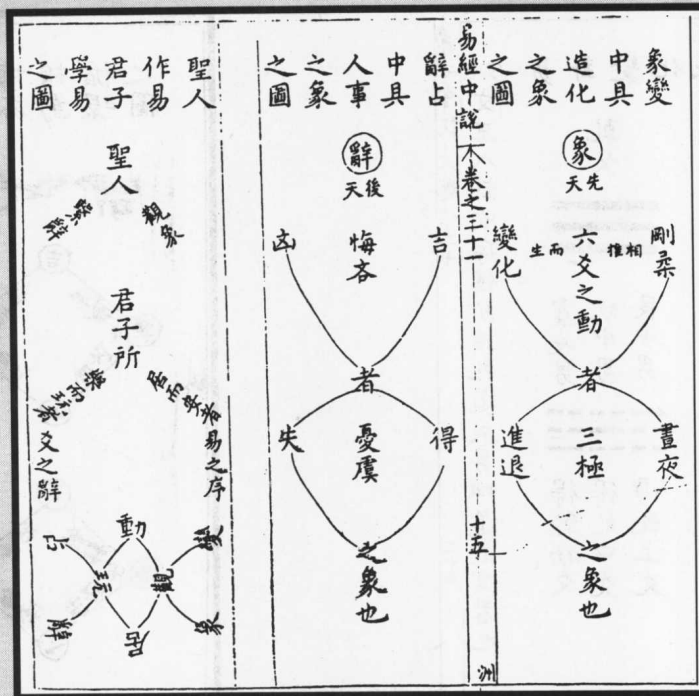 象變
中具
造化
之象
之圖
象
先天
剛柔
相推
六爻之動
而生
變化
者
晝夜
三極
進退
之象也
易經中說
卷之三十一
十五
洲
辭占
中具
人事
之象
之圖
辭
後天
吉
悔吝
凶
者
得
憂虞
失
之象也
聖人
作易
君子
學易
之圖
聖人
觀象
繫辭
君子所
居而安者
易之序
樂而玩者
爻之辭
變
動
占
觀
玩
象
居
辭